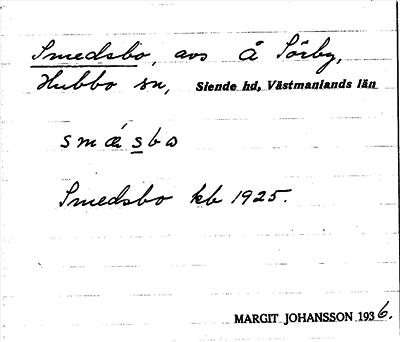 Smedsbo, avs å Sörby,
Hubbo sn, Siende hd, Västmanlands län
smǽsbo
Smedsbo kb 1925.
MARGIT JOHANSSON 1936.